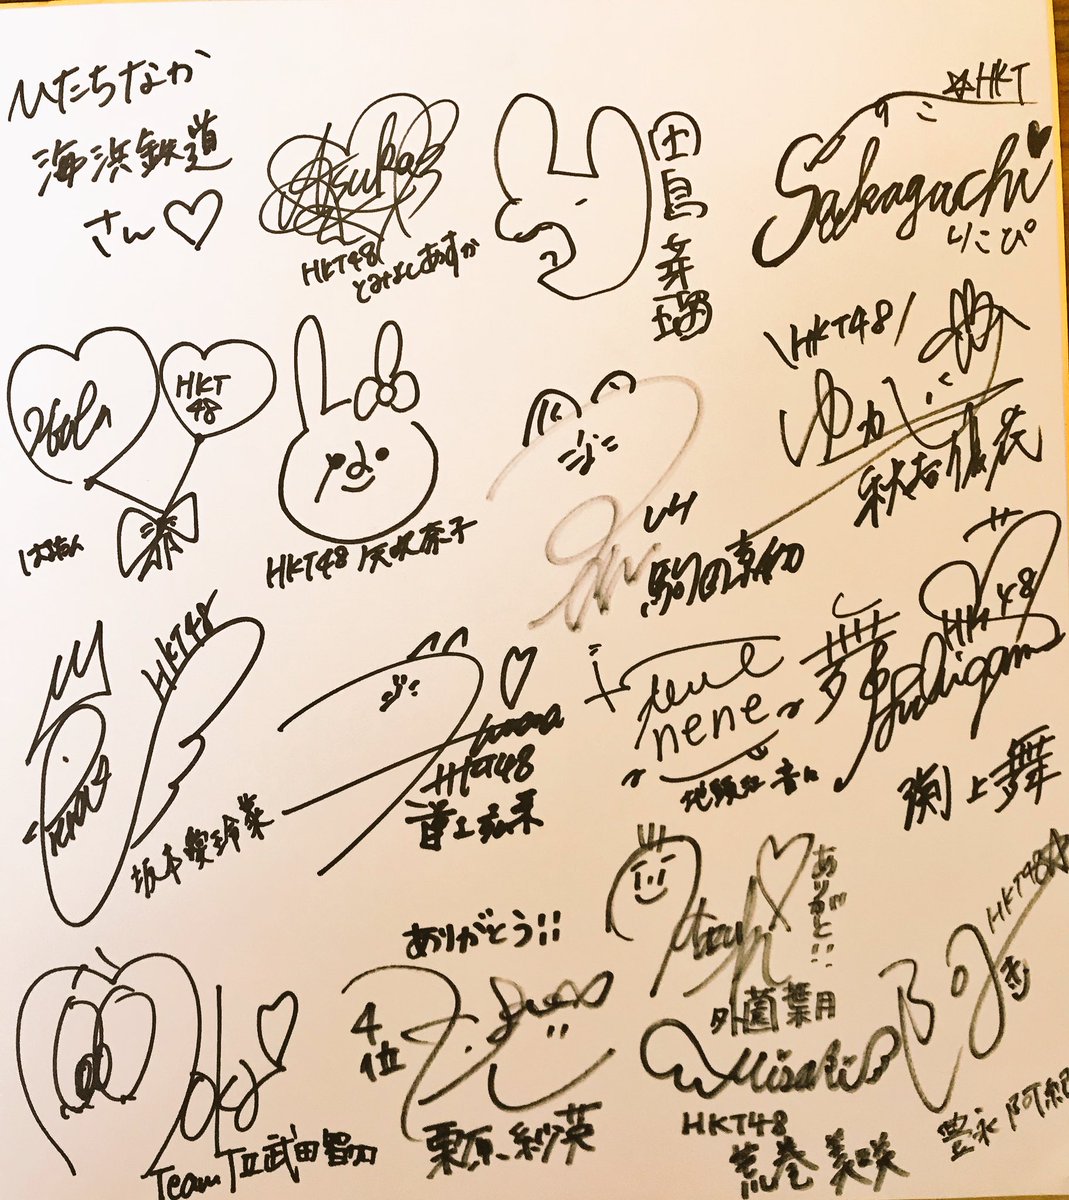 ひたちなか
海浜鉄道
さん♡
Asuka
HKT48
とみよしあすか
田島芽瑠
☆HKT
りこ
Sakaguchi
りこぴ
HKT
48
はるたん
HKT48 矢吹奈子
駒田京伽
\HKT48/
ゆかしぃ
秋吉優花
HKT48
坂本愛玲菜
HKT48
nene
地頭江音々
HKT48
Fuchigami
渕上舞
Moka
Team TⅡ 武田智加
ありがとう!!
4位
栗原紗英
ありがと!!
外薗葉月
Misaki
HKT48
荒巻美咲
HKT48☆
豊永阿紀